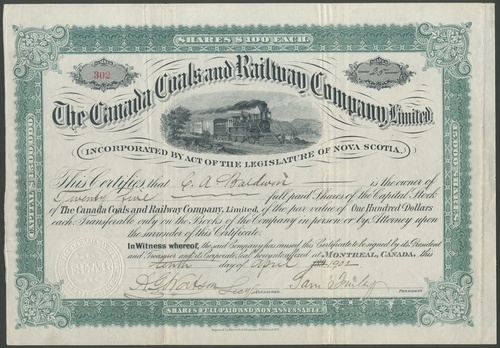 SHARES $100 EACH.
302
25
The Canada Coals and Railway Company, Limited.
(INCORPORATED BY ACT OF THE LEGISLATURE OF NOVA SCOTIA.)
This Certifies, that C. A. Baldwin is the owner of
Twenty five full paid Shares of the Capital Stock
of The Canada Coals and Railway Company, Limited, of the par value of One Hundred Dollars
each. Transferable only on the Books of the Company in person or by Attorney upon
the surrender of this Certificate.
In Witness whereof, the said Company has caused this Certificate to be signed by its President
and Treasurer and its Corporate Seal hereunto affixed at MONTREAL, CANADA, this
day of April
SHARES FULL PAID AND NON ASSESSABLE.